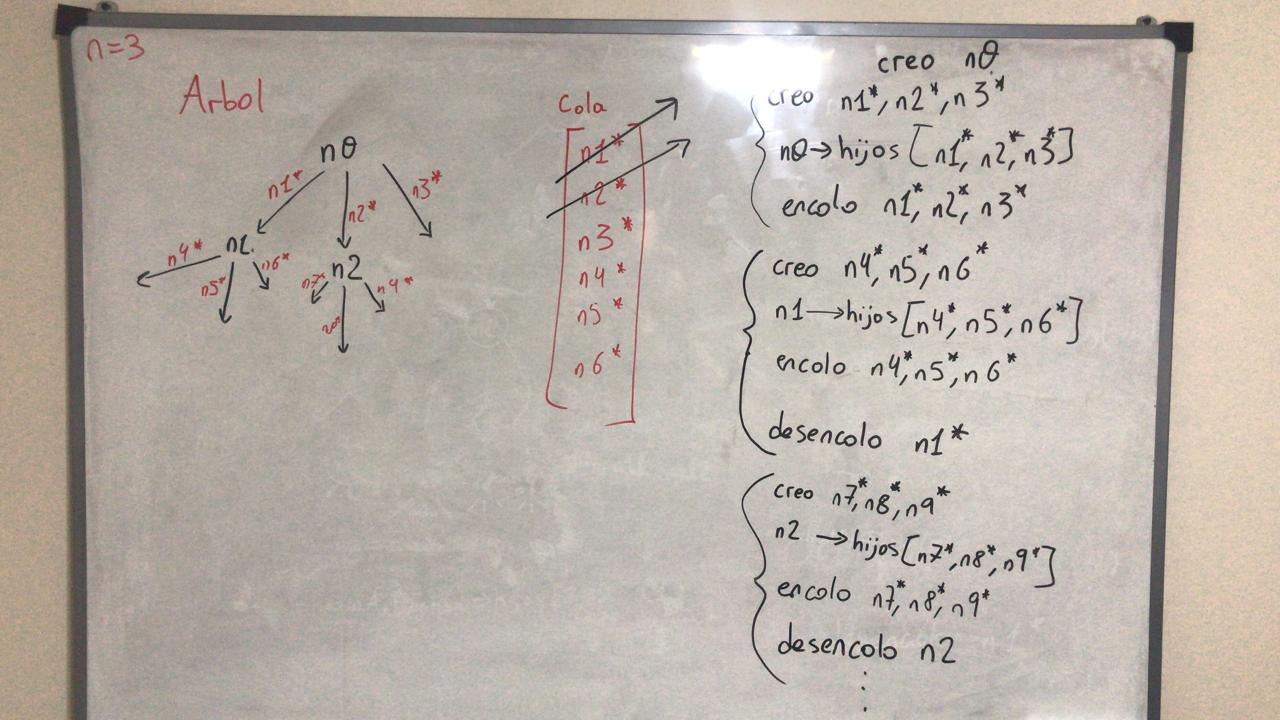 n=3
Arbol
nθ
n1* n2* n3*
n1. n2
n4* n5* n6* n7* n4*
Cola
n1*
n2*
n3*
n4*
n5*
n6*
creo nθ
creo n1*, n2*, n3*
nθ→hijos [n1*, n2*, n3*]
encolo n1*, n2*, n3*
creo n4*, n5*, n6*
n1→hijos [n4*, n5*, n6*]
encolo n4*, n5*, n6*
desencolo n1*
creo n7*, n8*, n9*
n2→hijos [n7*, n8*, n9*]
encolo n7*, n8*, n9*
desencolo n2